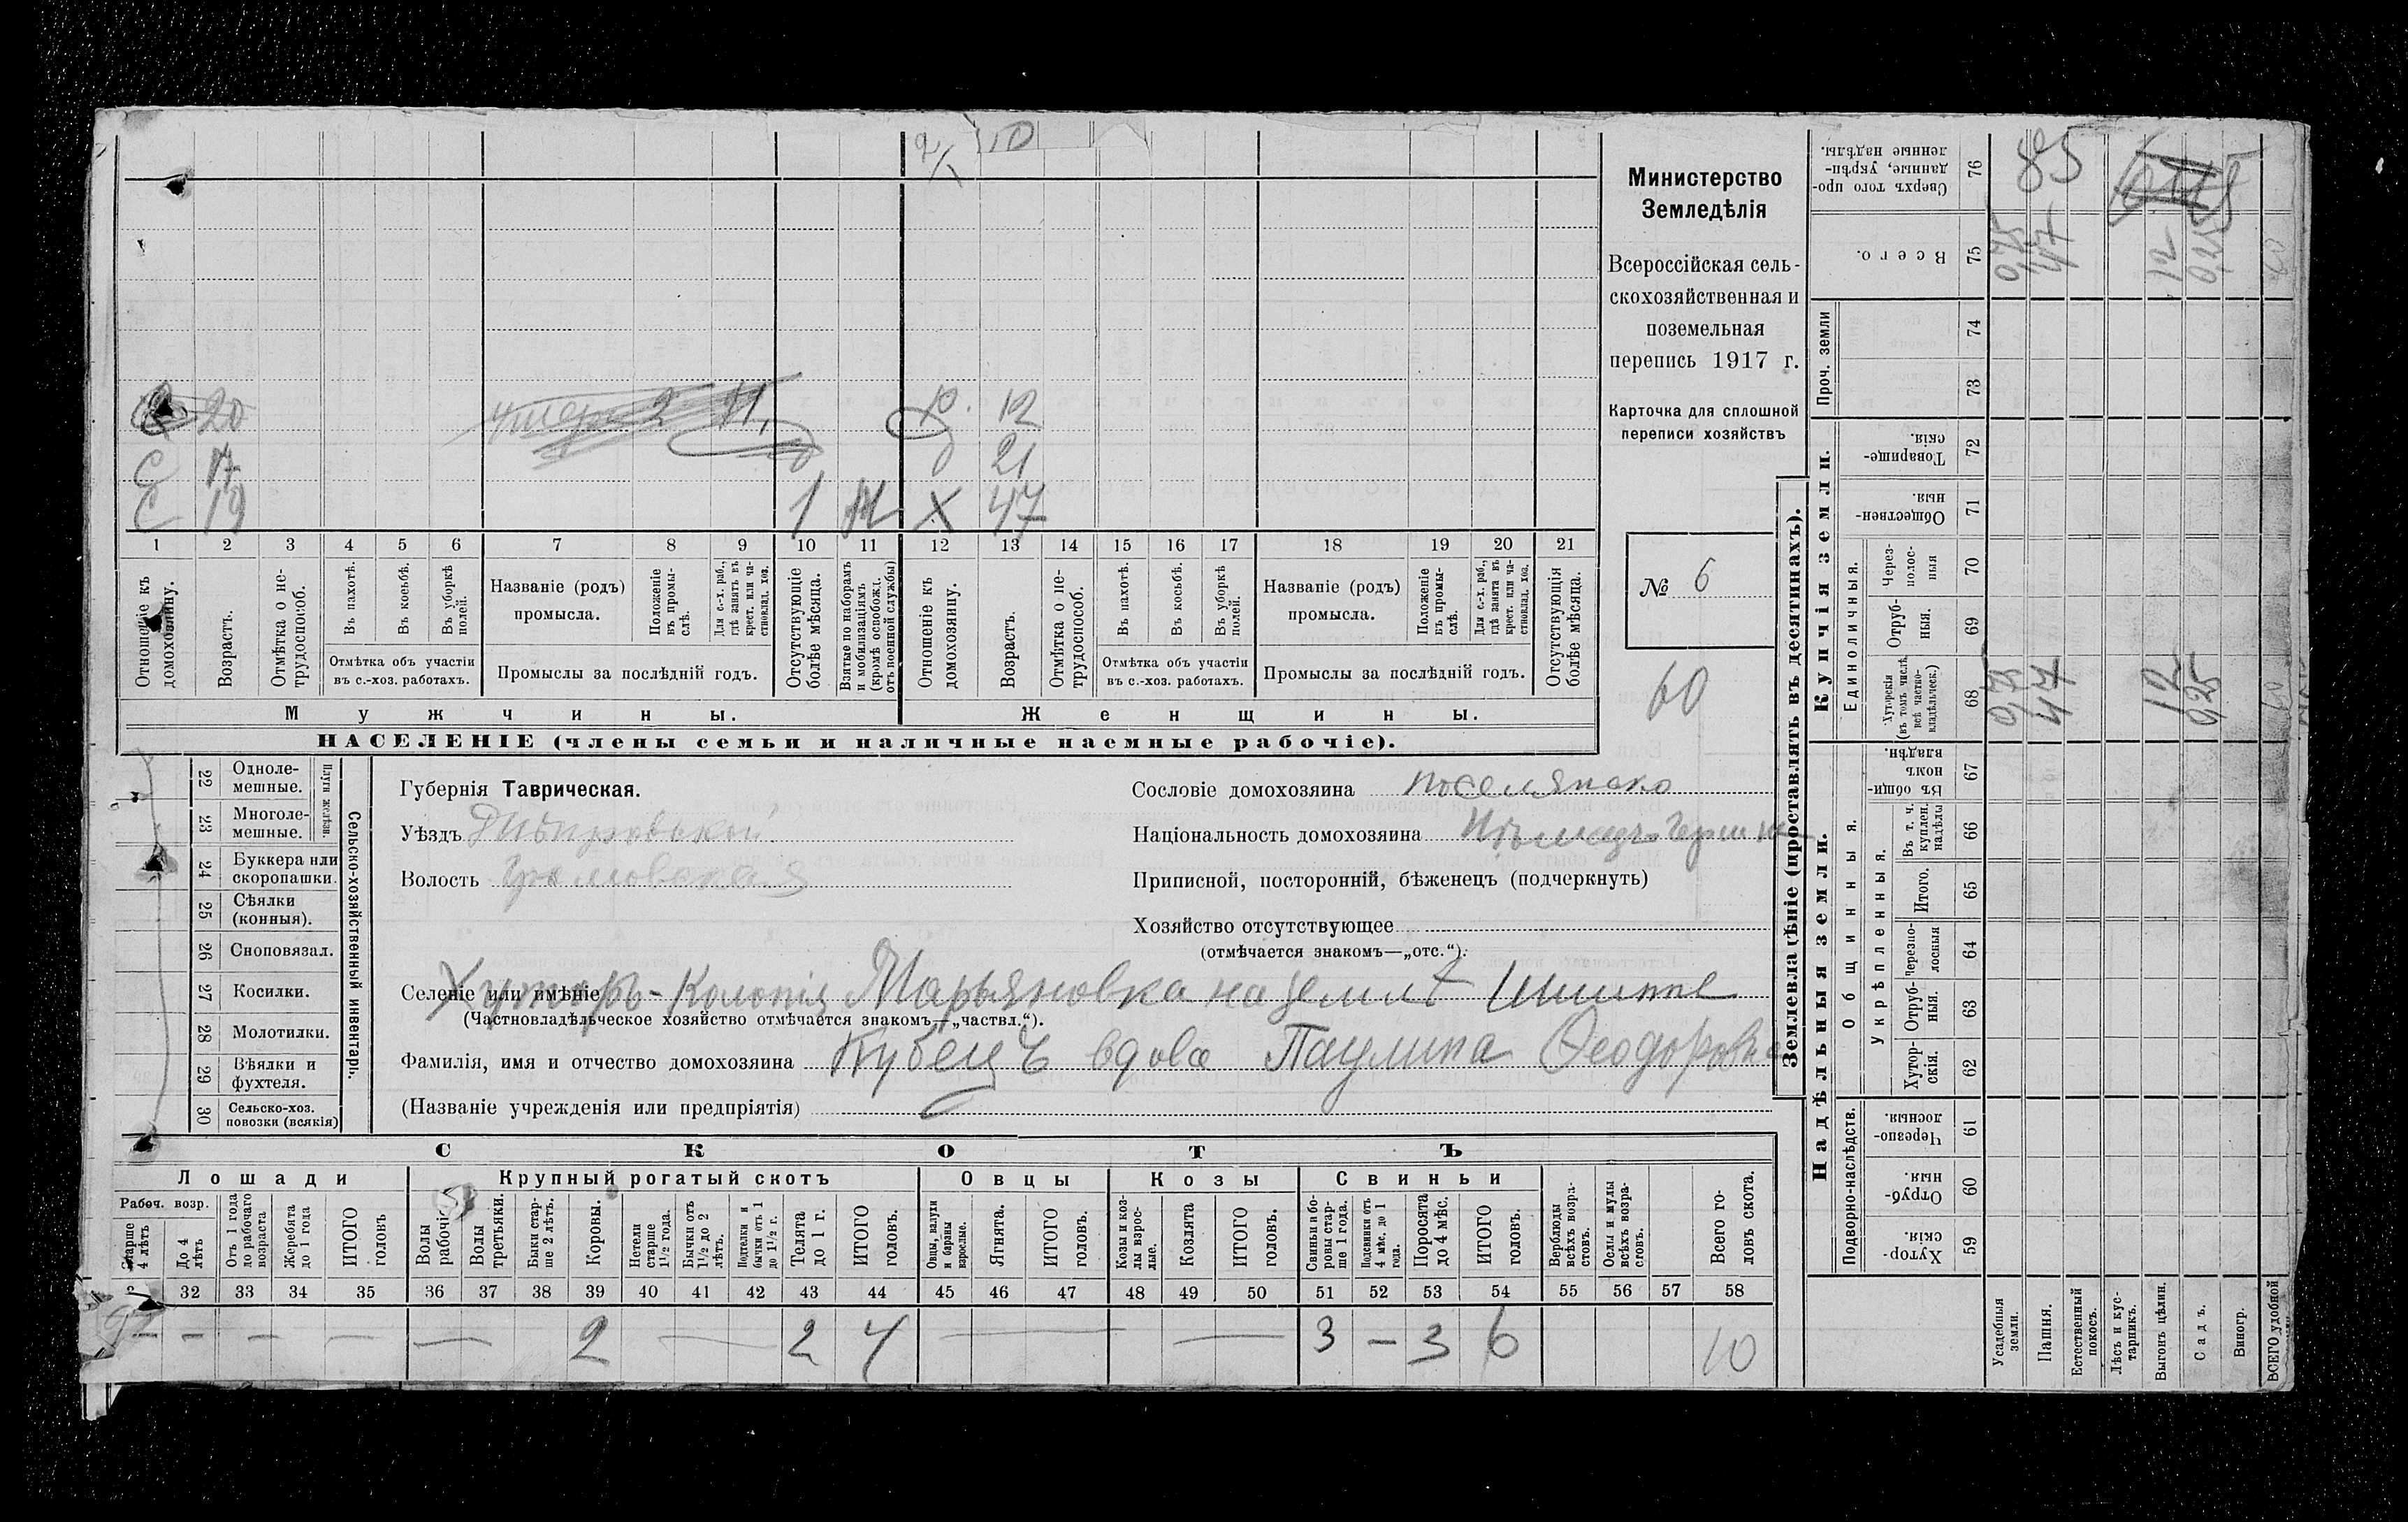 2/1 10
Министерство
Земледѣлія
Всероссійская сель-
скохозяйственная и
поземельная
перепись 1917 г.
Карточка для сплошной
переписи хозяйствъ
№ 6
60
20 умеръ 2 12
С 17 д 21
С 19 1 Х 47
1 2 3 4 5 6 7 8 9 10 11 12 13 14 15 16 17 18 19 20 21
Отношеніе къ домохозяину.
Возрастъ.
Отмѣтка о не-трудоспособ.
Въ пахотѣ.
Въ косьбѣ.
Въ уборкѣ полей.
Отмѣтка объ участіи
въ с.-хоз. работахъ.
Названіе (родъ)
промысла.
Положеніе въ промы-слѣ.
Для с.-х. раб., гдѣ занятъ въ крест. или ча-стновлад. хоз.
Промыслы за послѣдній годъ.
Отсутствующіе болѣе мѣсяца.
Взятые по наборамъ и мобилизаціямъ (кромѣ освобожд. отъ военной службы)
Отношеніе къ домохозяину.
Возрастъ.
Отмѣтка о не-трудоспособ.
Въ пахотѣ.
Въ косьбѣ.
Въ уборкѣ полей.
Отмѣтка объ участіи
въ с.-хоз. работахъ.
Названіе (родъ)
промысла.
Положеніе въ промы-слѣ.
Для с.-х. раб., гдѣ занята въ крест. или ча-стновлад. хоз.
Промыслы за послѣдній годъ.
Отсутствующія болѣе мѣсяца.
Мужчины. Женщины.
НАСЕЛЕНІЕ (члены семьи и наличные наемные рабочіе).
Сельско-хозяйственный инвентарь.
Плуги желѣзн.
22 Одноле-мешные.
23 Многоле-мешные.
24 Буккера или скоропашки.
25 Сѣялки (конныя).
26 Сноповязал.
27 Косилки.
28 Молотилки.
29 Вѣялки и фухтеля.
30 Сельско-хоз. повозки (всякія)
Губернія Таврическая.
Уѣздъ Днѣпровский
Волость
Сословіе домохозяина поселянско
Національность домохозяина Нѣмец
Приписной, посторонній, бѣженецъ (подчеркнуть)
Хозяйство отсутствующее
(отмѣчается знакомъ—„отс.“).
Селеніе или имѣніе Хуторъ-Колонія Марьяновка на землѣ
(Частновладѣльческое хозяйство отмѣчается знакомъ—„частвл.“).
Фамилія, имя и отчество домохозяина Кубецъ вдова Паулина Феодоровна
(Названіе учрежденія или предпріятія)
СКОТЪ
Лошади Крупный рогатый скотъ Овцы Козы Свиньи
Рабоч. возр.
Старше 4 лѣтъ
До 4 лѣтъ
Отъ 1 года до рабочаго возраста
Жеребята до 1 года
ИТОГО головъ
Волы рабочіе
Волы третьяки.
Быки стар-ше 2 лѣтъ.
Коровы.
Нетели старше 1½ года.
Бычки отъ 1½ до 2 лѣтъ.
Подтелки и бычки отъ 1 до 1½ г.
Телята до 1 г.
ИТОГО головъ.
Овцы, валухи и бараны взрослые.
Ягнята.
ИТОГО головъ.
Козы и коз-лы взрос-лые.
Козлята
ИТОГО головъ.
Свиньи и бо-ровы стар-ше 1 года.
Подсвинки отъ 4 мѣс. до 1 года.
Поросята до 4 мѣс.
ИТОГО головъ.
Верблюды всѣхъ возра-стовъ.
Ослы и мулы всѣхъ возра-стовъ.
Всего го-ловъ скота.
32 33 34 35 36 37 38 39 40 41 42 43 44 45 46 47 48 49 50 51 52 53 54 55 56 57 58
— — — — — 2 — 2 4 — — 3 — 3 6 10
Землевладѣніе (проставлять въ десятинахъ).
Купчія земли.
Надѣльныя земли.
Сверхъ того про-данные, укрѣп-ленные надѣлы. 76 85
Всего. 75 0,75 47 12 0,25 60
Проч. земли 74 73
Товарище-скія. 72
Обществен-ныя. 71
Единоличныя.
Через-полос-ныя 70
Отруб-ныя. 69
Хуторскія (въ томъ числѣ всѣ частно-владѣльческ.) 68 0,75 47 12 0,25 60
Общинныя.
Въ общи-номъ владѣн. 67
Укрѣпленныя.
Въ т. ч. куплен. надѣлы 66
Итого. 65
Черезпо-лосныя 64
Отруб-ныя. 63
Хутор-скія. 62
Подворно-наслѣдств.
Черезпо-лосныя. 61
Отруб-ныя. 60
Хутор-скія. 59
Усадебныя земли.
Пашня.
Естественный покосъ.
Лѣсъ и кус-тарникъ.
Выгонъ цѣлин.
Садъ.
Виногр.
ВСЕГО удобной